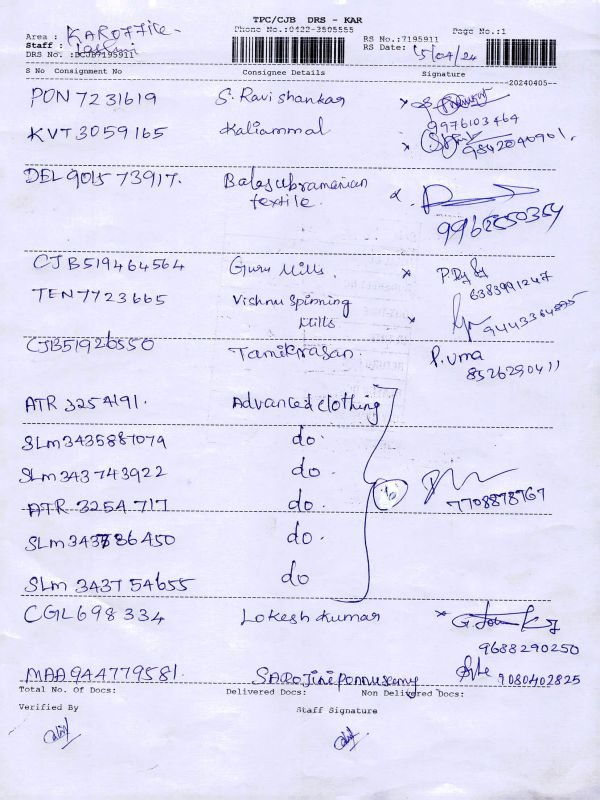 TPC/CJB DRS - KAR
Phone No.:0422-3505555
Page No.:1
Area : KAROFFICE
RS No.:7195911
Staff :
RS Date: 5/04/24
DRS No. :DCJB7195911
S No Consignment No Consignee Details Signature
--20240405--
PON 7231619 S. Ravi shankar
9976103464
KVT 3059165 Kaliammal 9842040901.
DEL 901573917. Balasubramanian
textile.
CJB519464564 Guru Mills.
6383991247
TEN7723665 Vishnu Spinning
Mills
CJB51926550 Tamilarasan. P. Uma
8526290411
ATR 3254191. Advanced clothing
SLM3435887079 do.
SLM343743922 do.
7708878767
ATR 3254717 do.
SLM343786450 do.
SLM 343754655 do
CGL698334 Lokesh kumar
9688290250
MAA944779581. SAROJinipONNUSAMY 9080402825
Total No. Of Docs: Delivered Docs: Non Delivered Docs:
Verified By Staff Signature